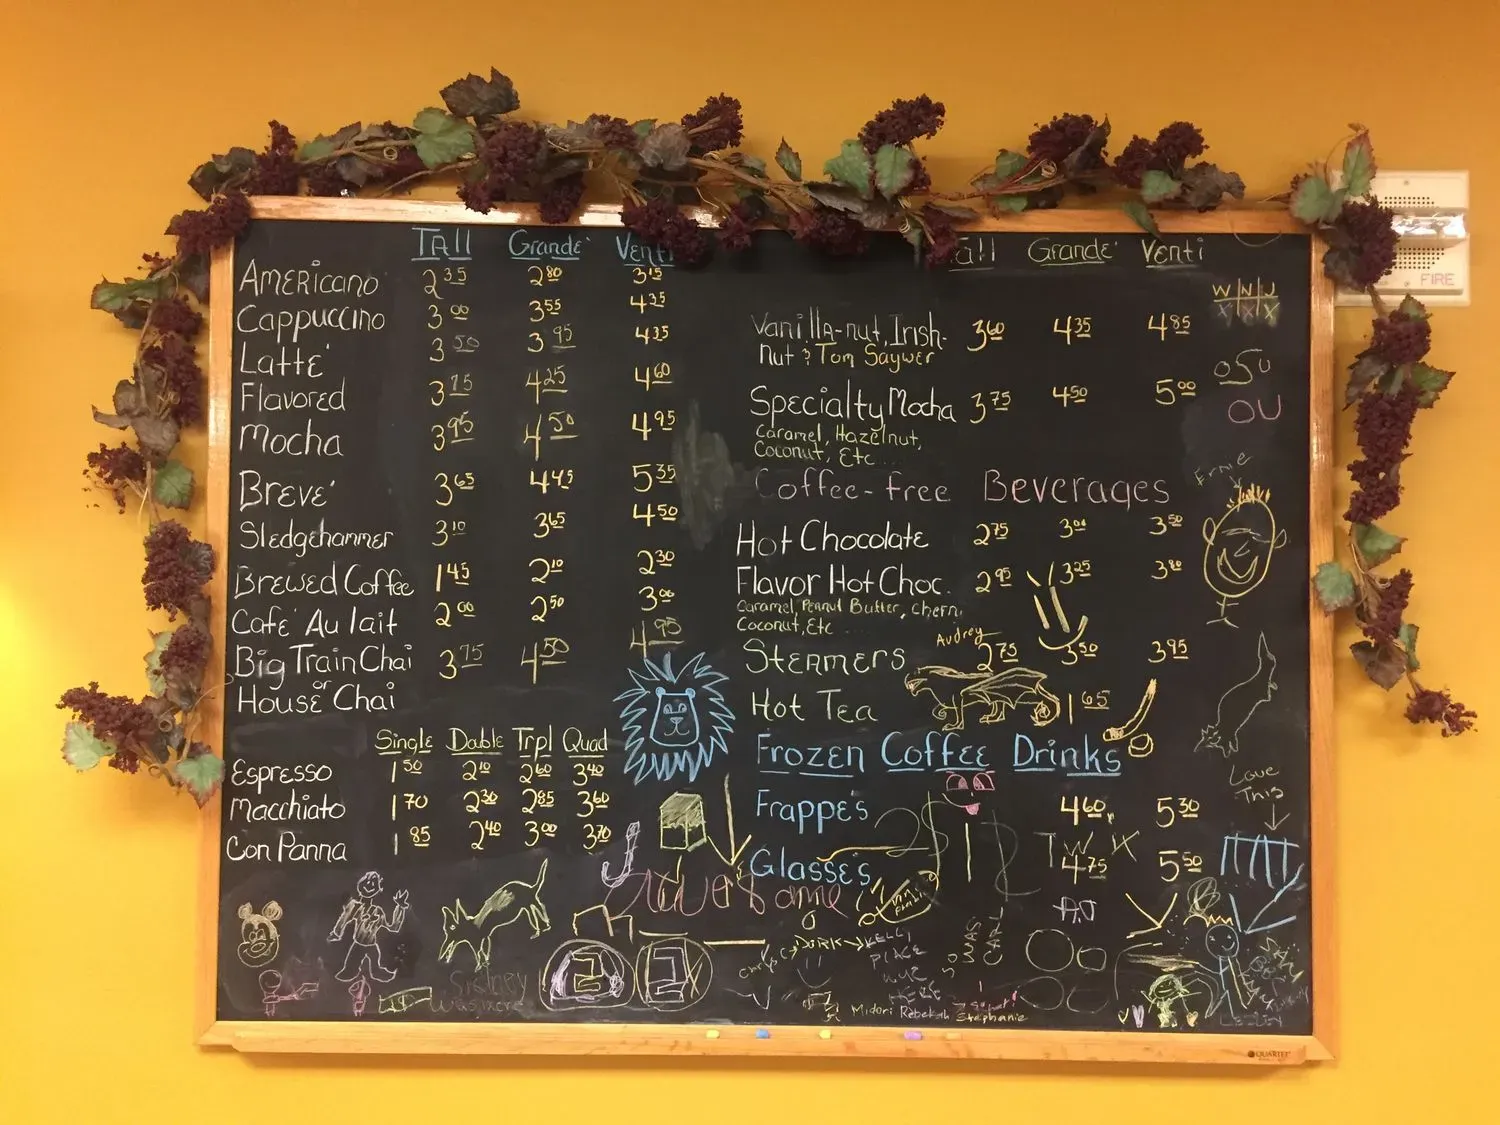 Tall Grandé Venti
Americano 2.35 2.80 3.15
Cappuccino 3.00 3.55 4.35
Latté 3.50 3.95 4.35
Flavored 3.75 4.25 4.60
Mocha 3.95 4.50 4.95
Brevé 3.65 4.45 5.35
Sledgehammer 3.10 3.65 4.50
Brewed Coffee 1.45 2.10 2.30
Café Au lait 2.00 2.50 3.00
Big Train Chai 3.75 4.50 4.95
or
House Chai
Single Double Trpl Quad
Espresso 1.50 2.10 2.60 3.40
Macchiato 1.70 2.30 2.85 3.60
Con Panna 1.85 2.40 3.00 3.70
Tall Grandé Venti
Vanilla-nut, Irish- 3.60 4.35 4.85
nut & Tom Saywer
Specialty Mocha 3.75 4.50 5.00
Caramel, Hazelnut,
Coconut, Etc...
Coffee-free Beverages
Hot Chocolate 2.75 3.00 3.50
Flavor Hot Choc. 2.95 3.25 3.80
Caramel, Peanut Butter, Cherry,
Coconut, Etc...
Audrey
Steamers 2.75 3.50 3.95
Hot Tea 1.65
Frozen Coffee Drinks
Frappe's 4.60 5.30
Glasses 4.75 5.50
W N J
X X X
OSU
OU
Ernie
Love
This
FIRE
Sidney
was here
Chrys
Dork
Kelly
I
WAS
CARL
SO
Midori Rebekah Stephanie
QUARTET